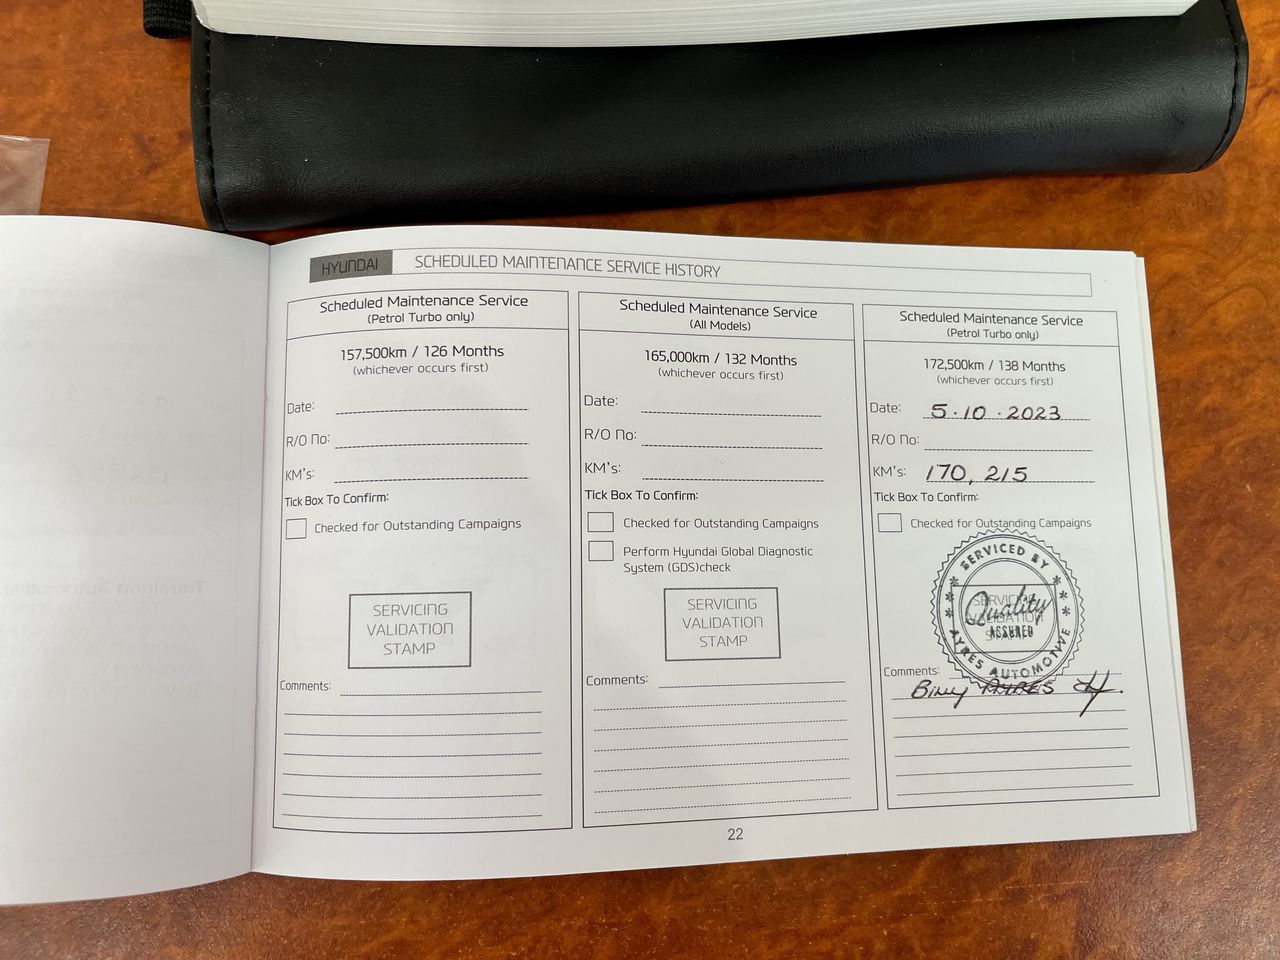 HYUNDAI SCHEDULED MAINTENANCE SERVICE HISTORY
Scheduled Maintenance Service
(Petrol Turbo only)
157,500km / 126 Months
(whichever occurs first)
Date:
R/O No:
KM's:
Tick Box To Confirm:
Checked for Outstanding Campaigns
SERVICING
VALIDATION
STAMP
Comments:
Scheduled Maintenance Service
(All Models)
165,000km / 132 Months
(whichever occurs first)
Date:
R/O No:
KM's:
Tick Box To Confirm:
Checked for Outstanding Campaigns
Perform Hyundai Global Diagnostic
System (GDS)check
SERVICING
VALIDATION
STAMP
Comments:
Scheduled Maintenance Service
(Petrol Turbo only)
172,500km / 138 Months
(whichever occurs first)
Date: 5.10.2023
R/O No:
KM's: 170,215
Tick Box To Confirm:
Checked for Outstanding Campaigns
SERVICED BY
SERVICING
VALIDATION
STAMP
Quality
ASSURED
AYRES AUTOMOTIVE
Comments:
AYRES
22